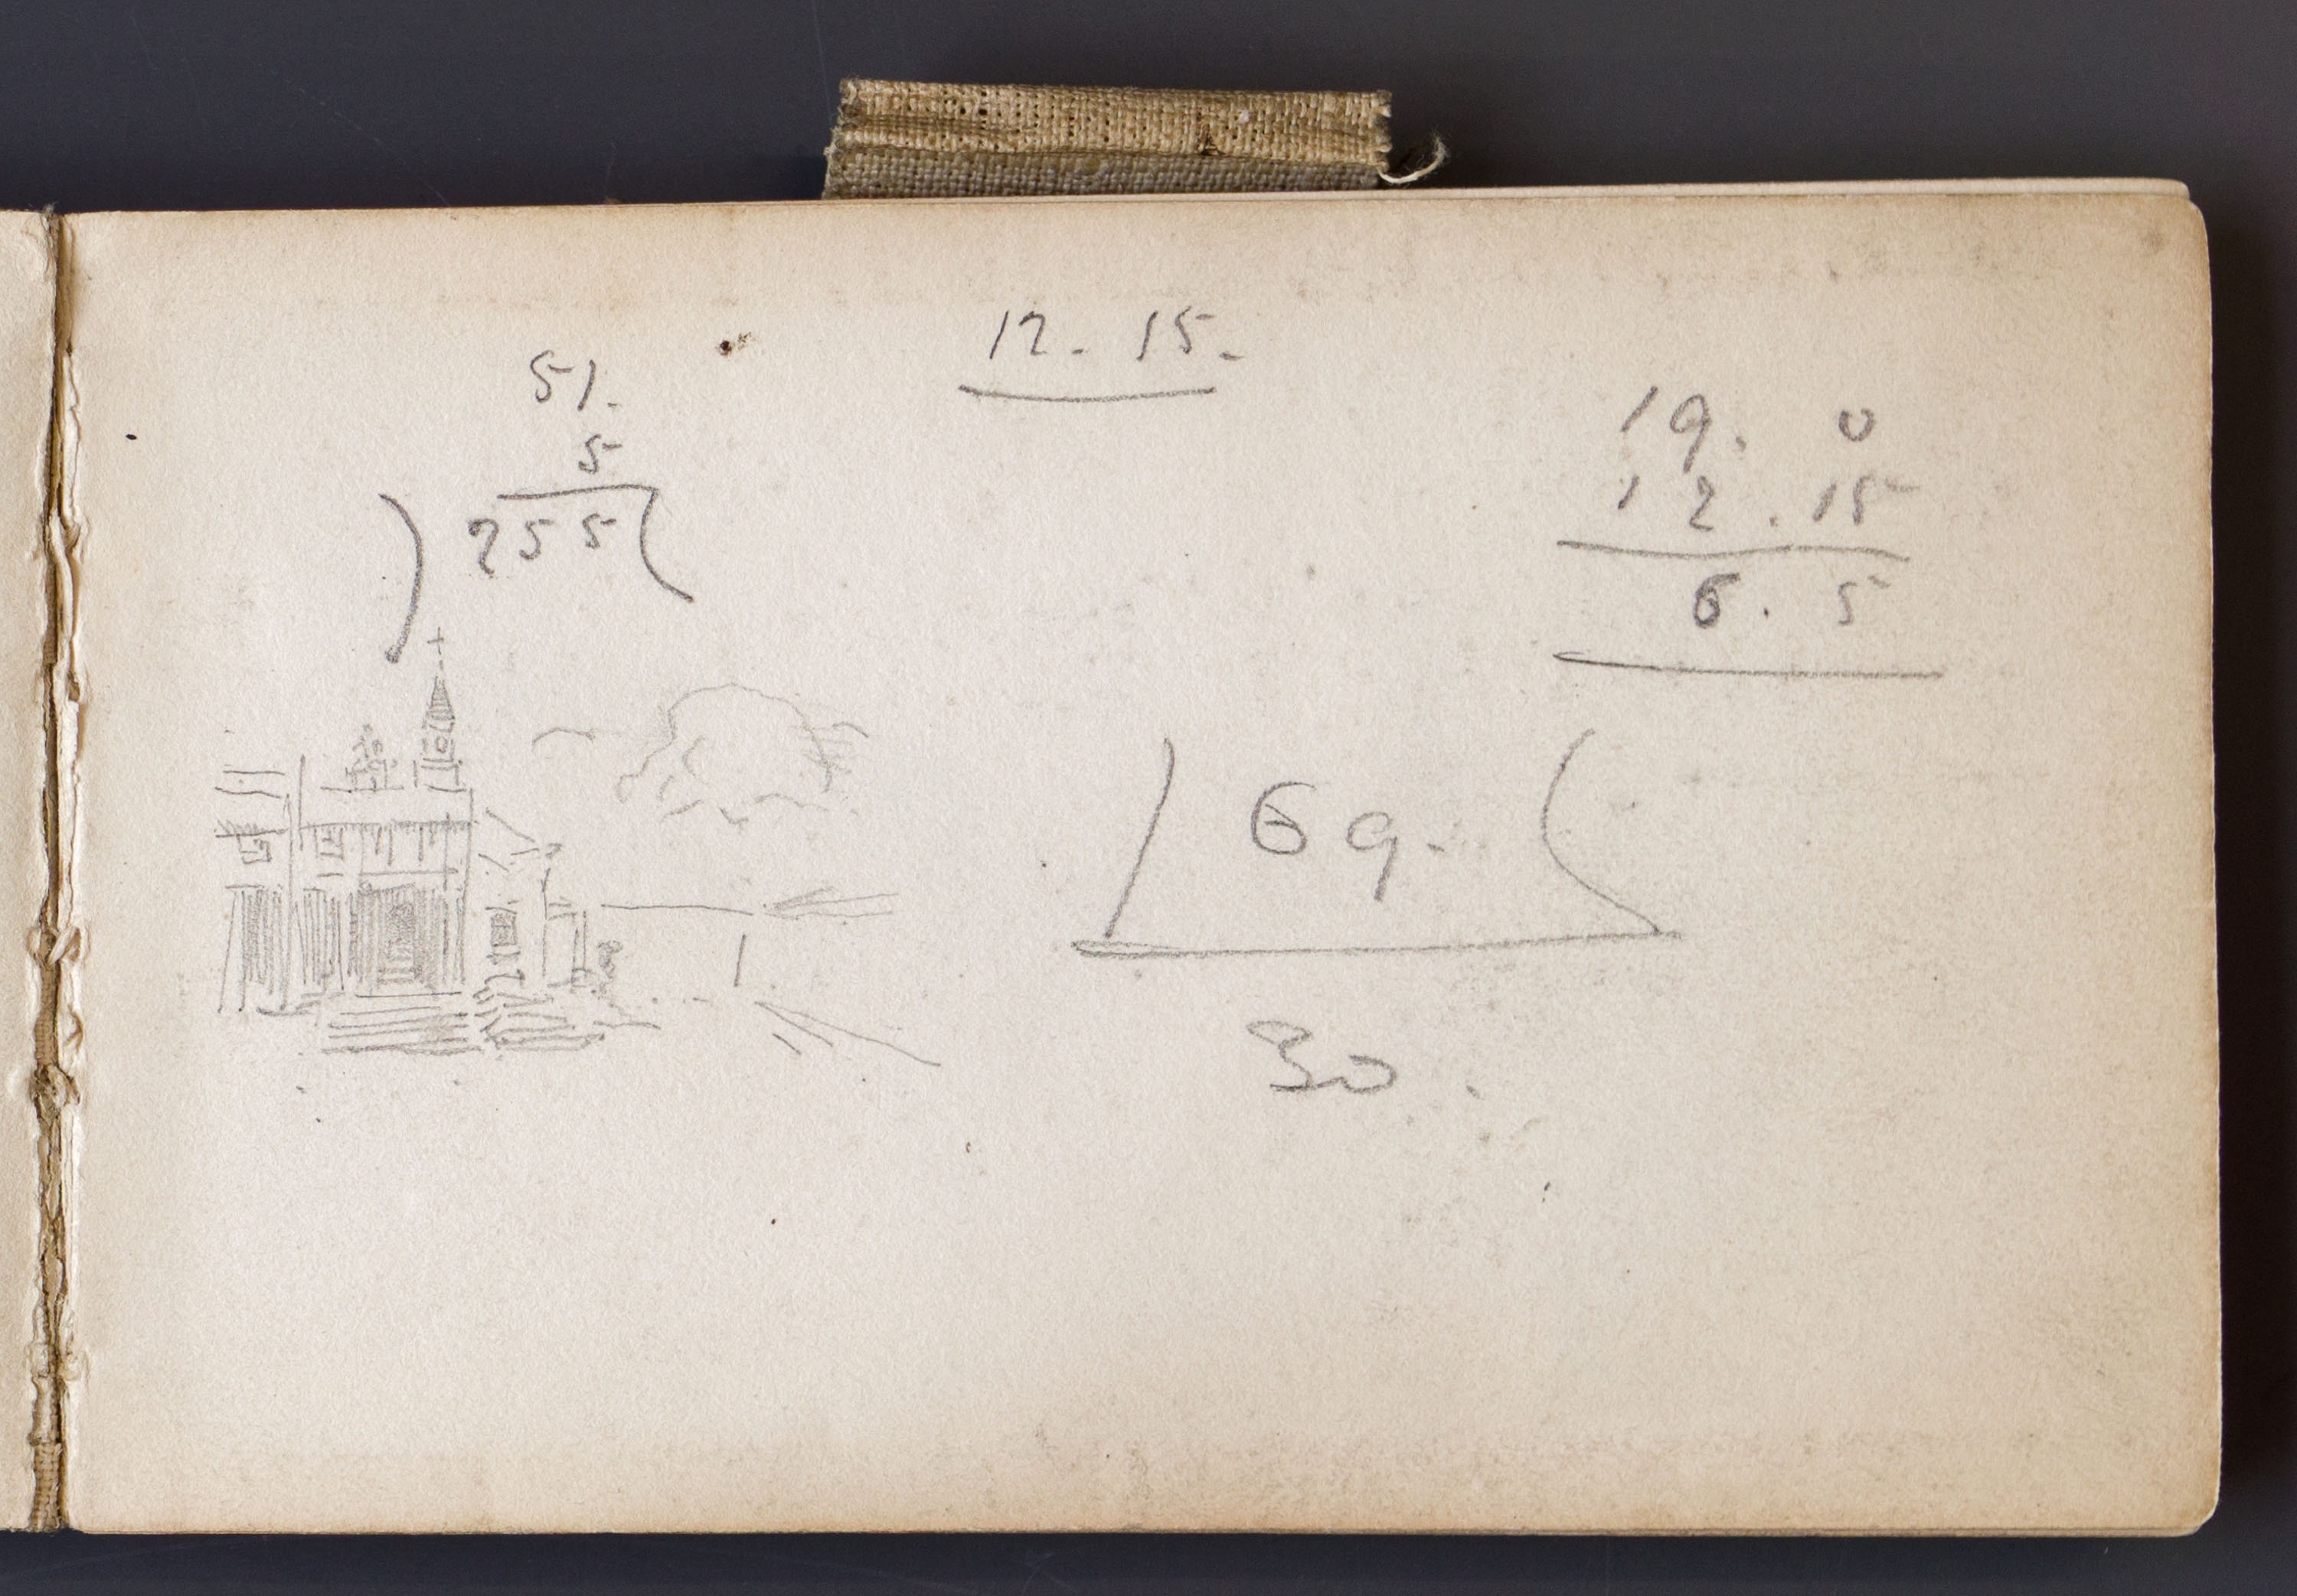 51.
5
255
12. 15.
19. 0
12. 15
6. 5
69.
30.